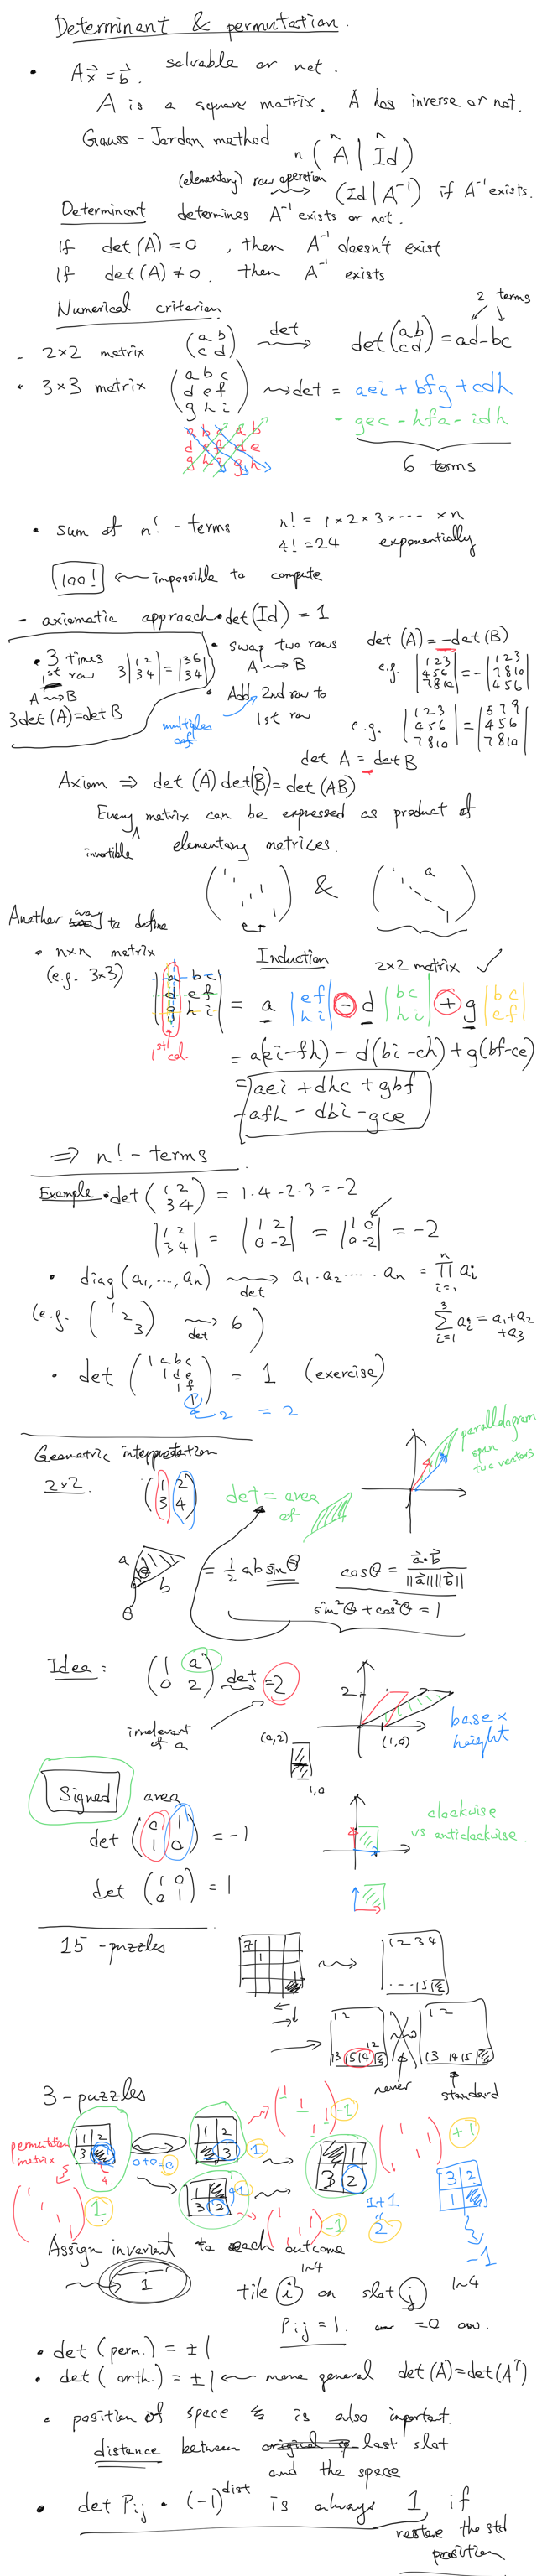 Determinant & permutation.
• Ax⃗ = b⃗. solvable or not.
A is a square matrix. A has inverse or not.
Gauss-Jordan method n ( A | Id )
n n
(elementary) row operation ⇝ (Id | A⁻¹) if A⁻¹ exists.
Determinant determines A⁻¹ exists or not.
If det(A) = 0, then A⁻¹ doesn't exist
If det(A) ≠ 0. then A⁻¹ exists
Numerical criterion.
2 terms
- 2×2 matrix (a b c d) det ⇝ det(a b c d) = ad-bc
• 3×3 matrix (a b c d e f g h i) ⇝ det = aei + bfg + cdh
- gec - hfa - idh
a b c a b
d e f d e
g h i g h
6 terms
• sum of n! - terms n! = 1×2×3×⋯×n
4! = 24 exponentially
100! ⇜ impossible to compute
- axiomatic approach • det(Id) = 1
• 3 times 1st row 3|1 2 3 4| = |3 6 3 4|
A ⇝ B
3det(A) = det B
• swap two rows det(A) = -det(B)
A ⇝ B e.g. |1 2 3 4 5 6 7 8 10| = -|1 2 3 7 8 10 4 5 6|
• Add 2nd row to 1st row
multiples of
e.g. |1 2 3 4 5 6 7 8 10| = |5 7 9 4 5 6 7 8 10|
det A = det B
Axiom ⇒ det(A) det(B) = det(AB)
Every matrix can be expressed as product of
invertible elementary matrices.
& a
Another way to define
• n×n matrix Induction 2×2 matrix ✓
(e.g. 3×3) |a b c d e f g h i| = a |e f h i| - d |b c h i| + g |b c e f|
1st col.
= a(ei-fh) - d(bi-ch) + g(bf-ce)
= aei + dhc + gbf
-afh - dbi - gce
⇒ n! - terms
Example • det(1 2 3 4) = 1·4 - 2·3 = -2
|1 2 3 4| = |1 2 0 -2| = |1 0 0 -2| = -2
• diag(a₁, ..., aₙ) ⇝ det a₁·a₂·⋯·aₙ = ∏ⁿᵢ₌₁ aᵢ
(e.g. (1 2 3) ⇝ det 6)
∑³ᵢ₌₁ aᵢ = a₁+a₂+a₃
• det(1 a b c 1 d e 1 f 1) = 1 (exercise)
2 = 2
Geometric interpretation
2×2. (1 2 3 4) det = area of
parallelogram span two vectors
a b θ = ½ ab sinθ cosθ = a⃗·b⃗ / ||a⃗|| ||b⃗||
sin²θ + cos²θ = 1
Idea: (1 a 0 2) det ⇝ = 2
irrelevant of a
2 (1,0) base × height
(a,2)
1,0
Signed area
det(0 1 1 0) = -1
clockwise vs anticlockwise.
det(1 0 0 1) = 1
15-puzzles
7 1 ⇝ 1 2 3 4 ... 15
1 2 12 13 15 14
1 2 13 14 15
never standard
3-puzzles
permutation matrix
1 2 3 4
0+0=0
1 2 3 1
1 3 2 1
1 3 2
1+1 2
3 2 1
1 -1 -1 +1 -1
Assign invariant to each outcome
1
1~4 1~4
tile i on slot j
Pij = 1. =0 ow.
• det(perm.) = ±1
• det(orth.) = ±1 ⇜ more general det(A) = det(Aᵀ)
• position of space is also important.
distance between last slot
and the space
• det Pij · (-1)^dist is always 1 if
restore the std
position